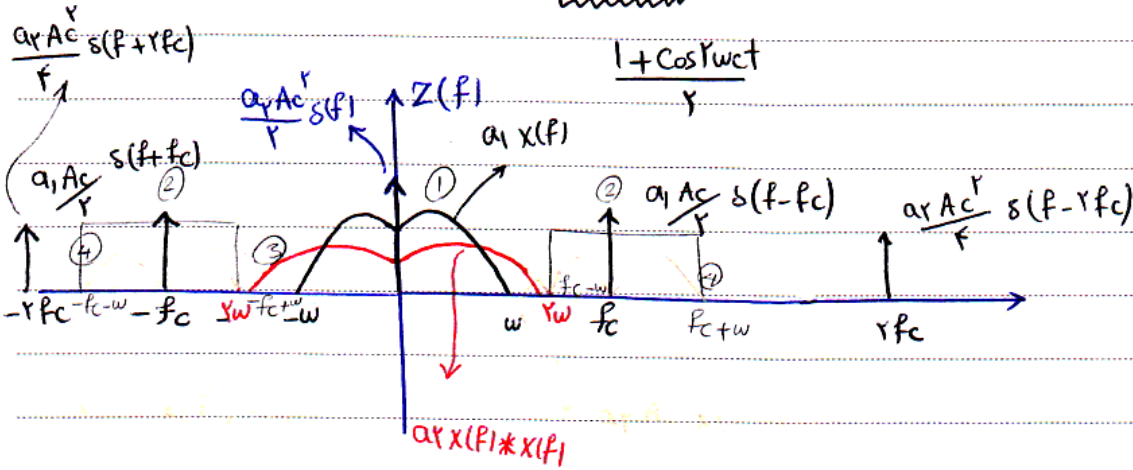 a۲Ac^۲/۴ δ(f+۲fc)
(1+Cos۲wct)/۲
a۲Ac^۲/۲ δ(f)
Z(f)
a₁ x(f)
a₁Ac/۲ δ(f+fc)
②
①
②
a₁Ac/۲ δ(f-fc)
a۲Ac^۲/۴ δ(f-۲fc)
④
③
④
-۲fc -fc-w -fc -۲w -fc+w -w w ۲w fc-w fc fc+w ۲fc
a۲ x(f)*x(f)